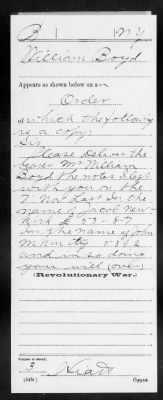 B | N.Y.
William Boyd
Appears as shown below on a
Order
of which the following
is a copy:
Sir
Please deliver the
bearer Mr William
Boyd the notes I left
with you on the
7. Nov Last In the
name of Jacob New
Kirk £ 53-
In the name of John
and in so doing
you will (over)
(Revolutionary War.)
Number of record:
3
(545c) Copyist.